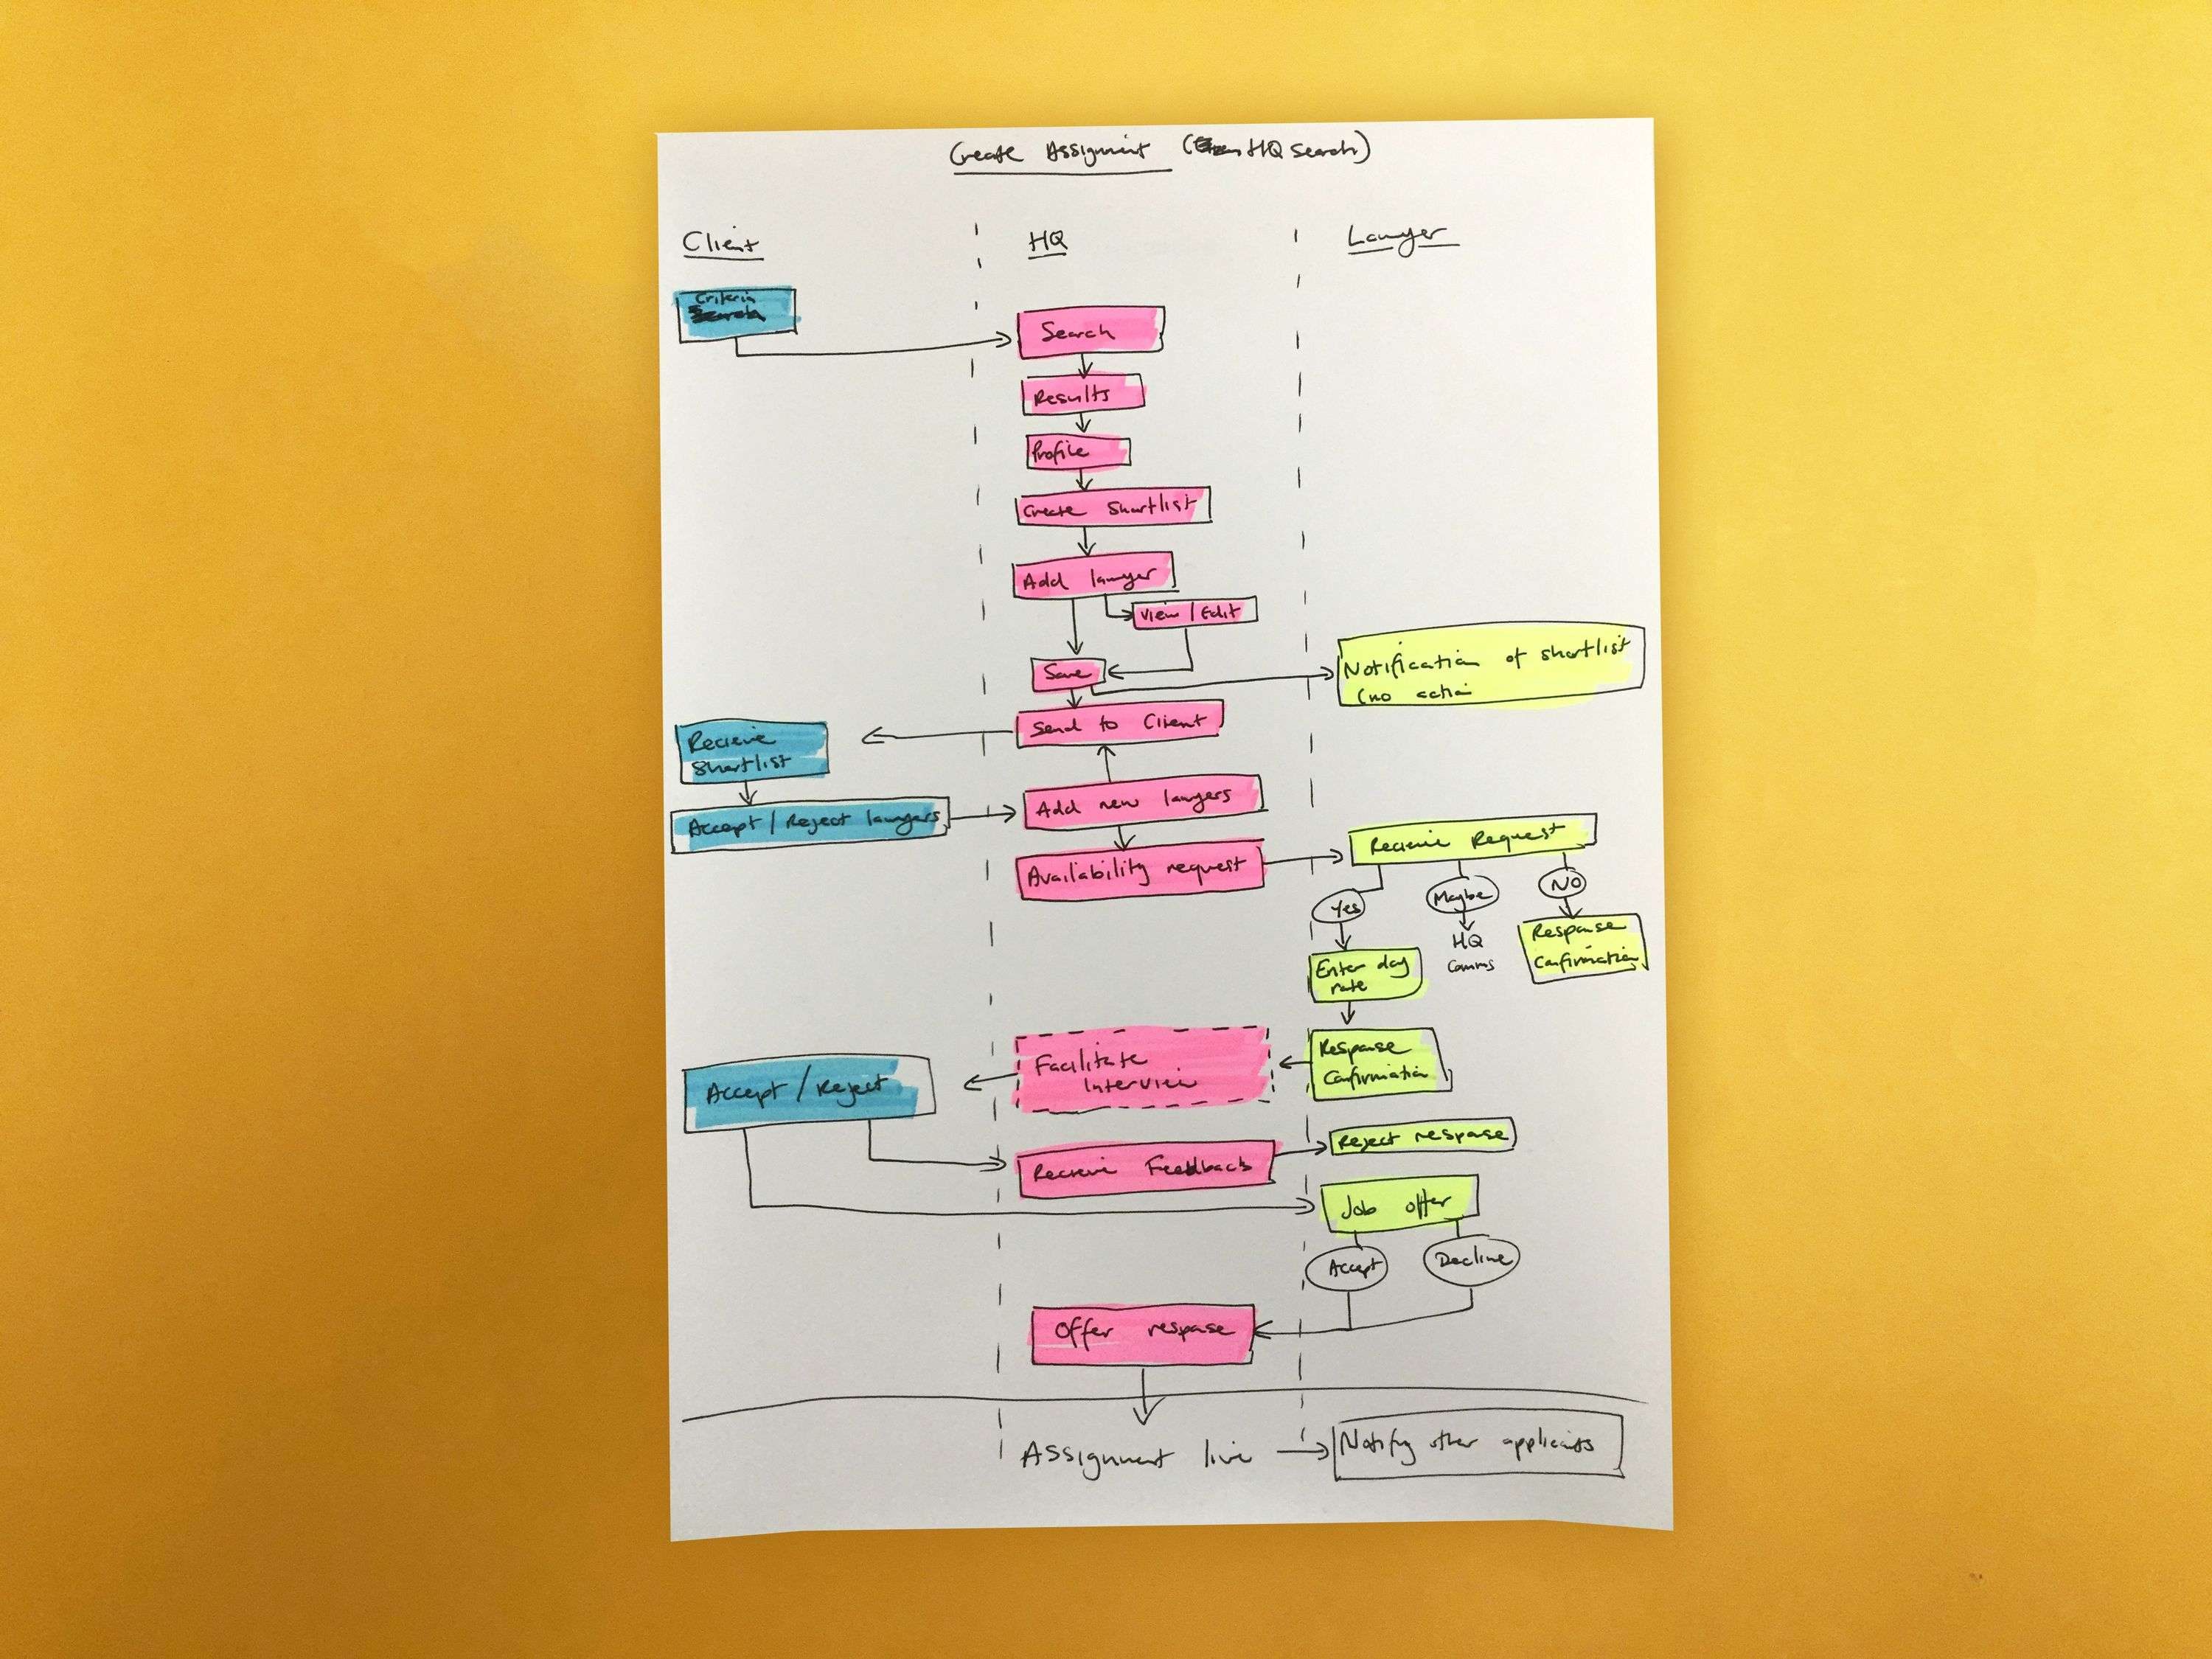 Create Assignment (HQ Search)
Client
HQ
Lawyer
Criteria
Search
Search
Results
Profile
Create Shortlist
Add lawyer
View / Edit
Save
Notification of shortlist
(no action
Send to Client
Recieve
Shortlist
Accept / Reject lawyers
Add new lawyers
Availability request
Recieve Request
Yes
Maybe
NO
HQ
Comms
Response
Confirmation
Enter day
rate
Response
Confirmation
Facilitate
Interview
Accept / Reject
Recieve Feedback
Reject response
Job offer
Accept
Decline
Offer response
Assignment live
Notify other applicants